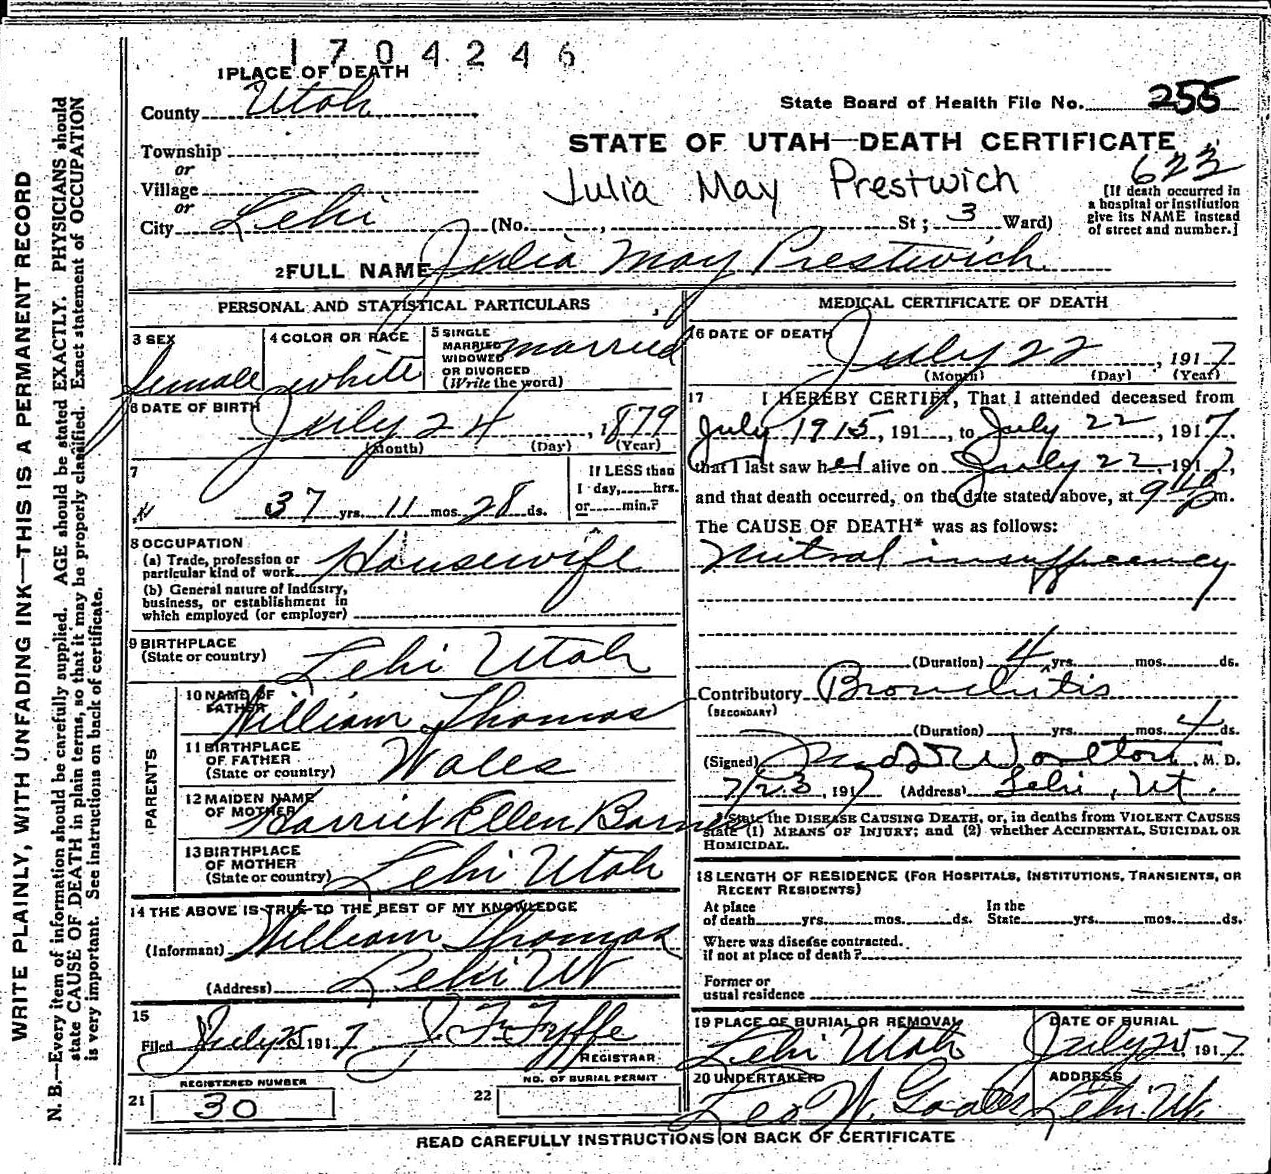 1704246
1 PLACE OF DEATH
County Utah
State Board of Health File No. 255
STATE OF UTAH—DEATH CERTIFICATE
622
Township
or
Village
Julia May Prestwich
[If death occurred in
a hospital or institution
give its NAME instead
of street and number.]
or
City Lehi (No. , St; 3 Ward)
2 FULL NAME Julia May Prestwich
PERSONAL AND STATISTICAL PARTICULARS
3 SEX
female
4 COLOR OR RACE
white
5 SINGLE
MARRIED
WIDOWED
OR DIVORCED
(Write the word)
married
6 DATE OF BIRTH
July 24, 1879
(Month) (Day) (Year)
7
37 yrs. 11 mos. 28 ds.
If LESS than
1 day, hrs.
or min.?
8 OCCUPATION
(a) Trade, profession or
particular kind of work Housewife
(b) General nature of Industry,
business, or establishment in
which employed (or employer)
9 BIRTHPLACE
(State or country) Lehi Utah
PARENTS
10 NAME OF
FATHER William Thomas
11 BIRTHPLACE
OF FATHER
(State or country) Wales
12 MAIDEN NAME
OF MOTHER Harriet Ellen Barnes
13 BIRTHPLACE
OF MOTHER
(State or country) Lehi Utah
14 THE ABOVE IS TRUE TO THE BEST OF MY KNOWLEDGE
(Informant) William Thomas
(Address) Lehi Ut
15
Filed July 25 1917 J. F. Fyffe
REGISTRAR
REGISTERED NUMBER
21 30
NO. OF BURIAL PERMIT
22
MEDICAL CERTIFICATE OF DEATH
16 DATE OF DEATH
July 22, 1917
(Month) (Day) (Year)
17 I HEREBY CERTIFY, That I attended deceased from
July 1915, 191 , to July 22, 1917,
that I last saw her alive on July 22, 1917,
and that death occurred, on the date stated above, at 9 m.
The CAUSE OF DEATH* was as follows:
Mitral insufficency
(Duration) 4 yrs. mos. ds.
Contributory Bronchitis
(SECONDARY)
(Duration) yrs. mos. 4 ds.
(Signed) Worlton, M. D.
7/23, 1917 (Address) Lehi, Ut.
* State the DISEASE CAUSING DEATH, or, in deaths from VIOLENT CAUSES
state (1) MEANS OF INJURY; and (2) whether ACCIDENTAL, SUICIDAL OR
HOMICIDAL.
18 LENGTH OF RESIDENCE (FOR HOSPITALS, INSTITUTIONS, TRANSIENTS, OR
RECENT RESIDENTS)
At place
of death yrs. mos. ds.
In the
State yrs. mos. ds.
Where was disease contracted.
if not at place of death?
Former or
usual residence
19 PLACE OF BURIAL OR REMOVAL
Lehi Utah
DATE OF BURIAL
July 25 1917
20 UNDERTAKER
Leo W. Goates
ADDRESS
Lehi. Ut.
READ CAREFULLY INSTRUCTIONS ON BACK OF CERTIFICATE
WRITE PLAINLY, WITH UNFADING INK—THIS IS A PERMANENT RECORD
N. B.—Every item of information should be carefully supplied. AGE should be stated EXACTLY. PHYSICIANS should
state CAUSE OF DEATH in plain terms, so that it may be properly classified. Exact statement of OCCUPATION
is very important. See instructions on back of certificate.